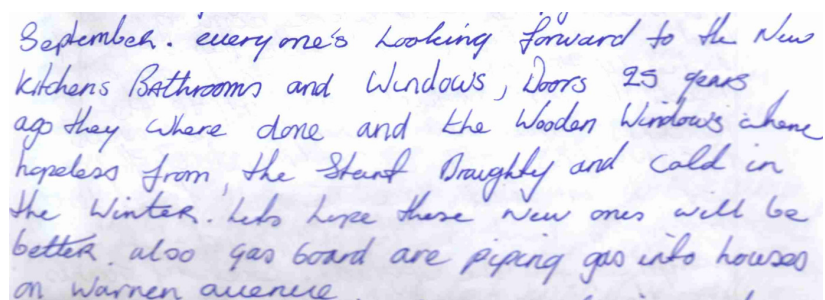 September. everyone's Looking forward to the New
Kitchens Bathrooms and Windows, Doors 25 years
ago they where done and the Wooden Windows where
hopeless from, the Start Draughty and cold in
the Winter. Lets hope these New ones will be
better. also gas board are piping gas into houses
on Warren avenue.